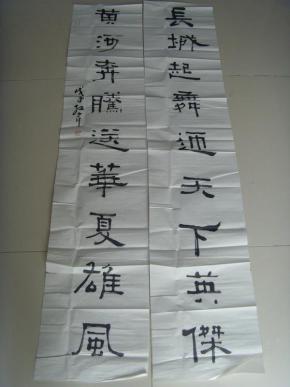 長城起舞通天下英傑
黄河奔騰送華夏雄風